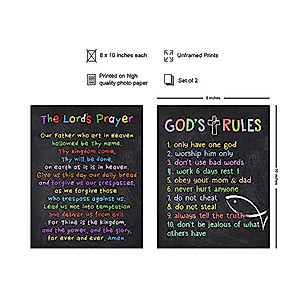 8 x 10 inches each
Unframed Prints
Printed on high
quality photo paper
Set of 2
8 inches
10 inches
The Lord's Prayer
Our Father who art in Heaven
hallowed be Thy name.
Thy kingdom come,
Thy will be done,
on earth as it is in heaven.
Give us this day our daily bread
and forgive us our trespasses,
as we forgive those
who trespass against us.
Lead us not into temptation
but deliver us from evil.
For thine is the kingdom,
and the power, and the glory,
for ever and ever, Amen.
GOD'S RULES
1. only have one god
2. worship him only
3. don't use bad words
4. work 6 days rest 1
5. obey your mom & dad
6. never hurt anyone
7. do not cheat
8. do not steal
9. always tell the truth
10. don't be jealous of what
others have